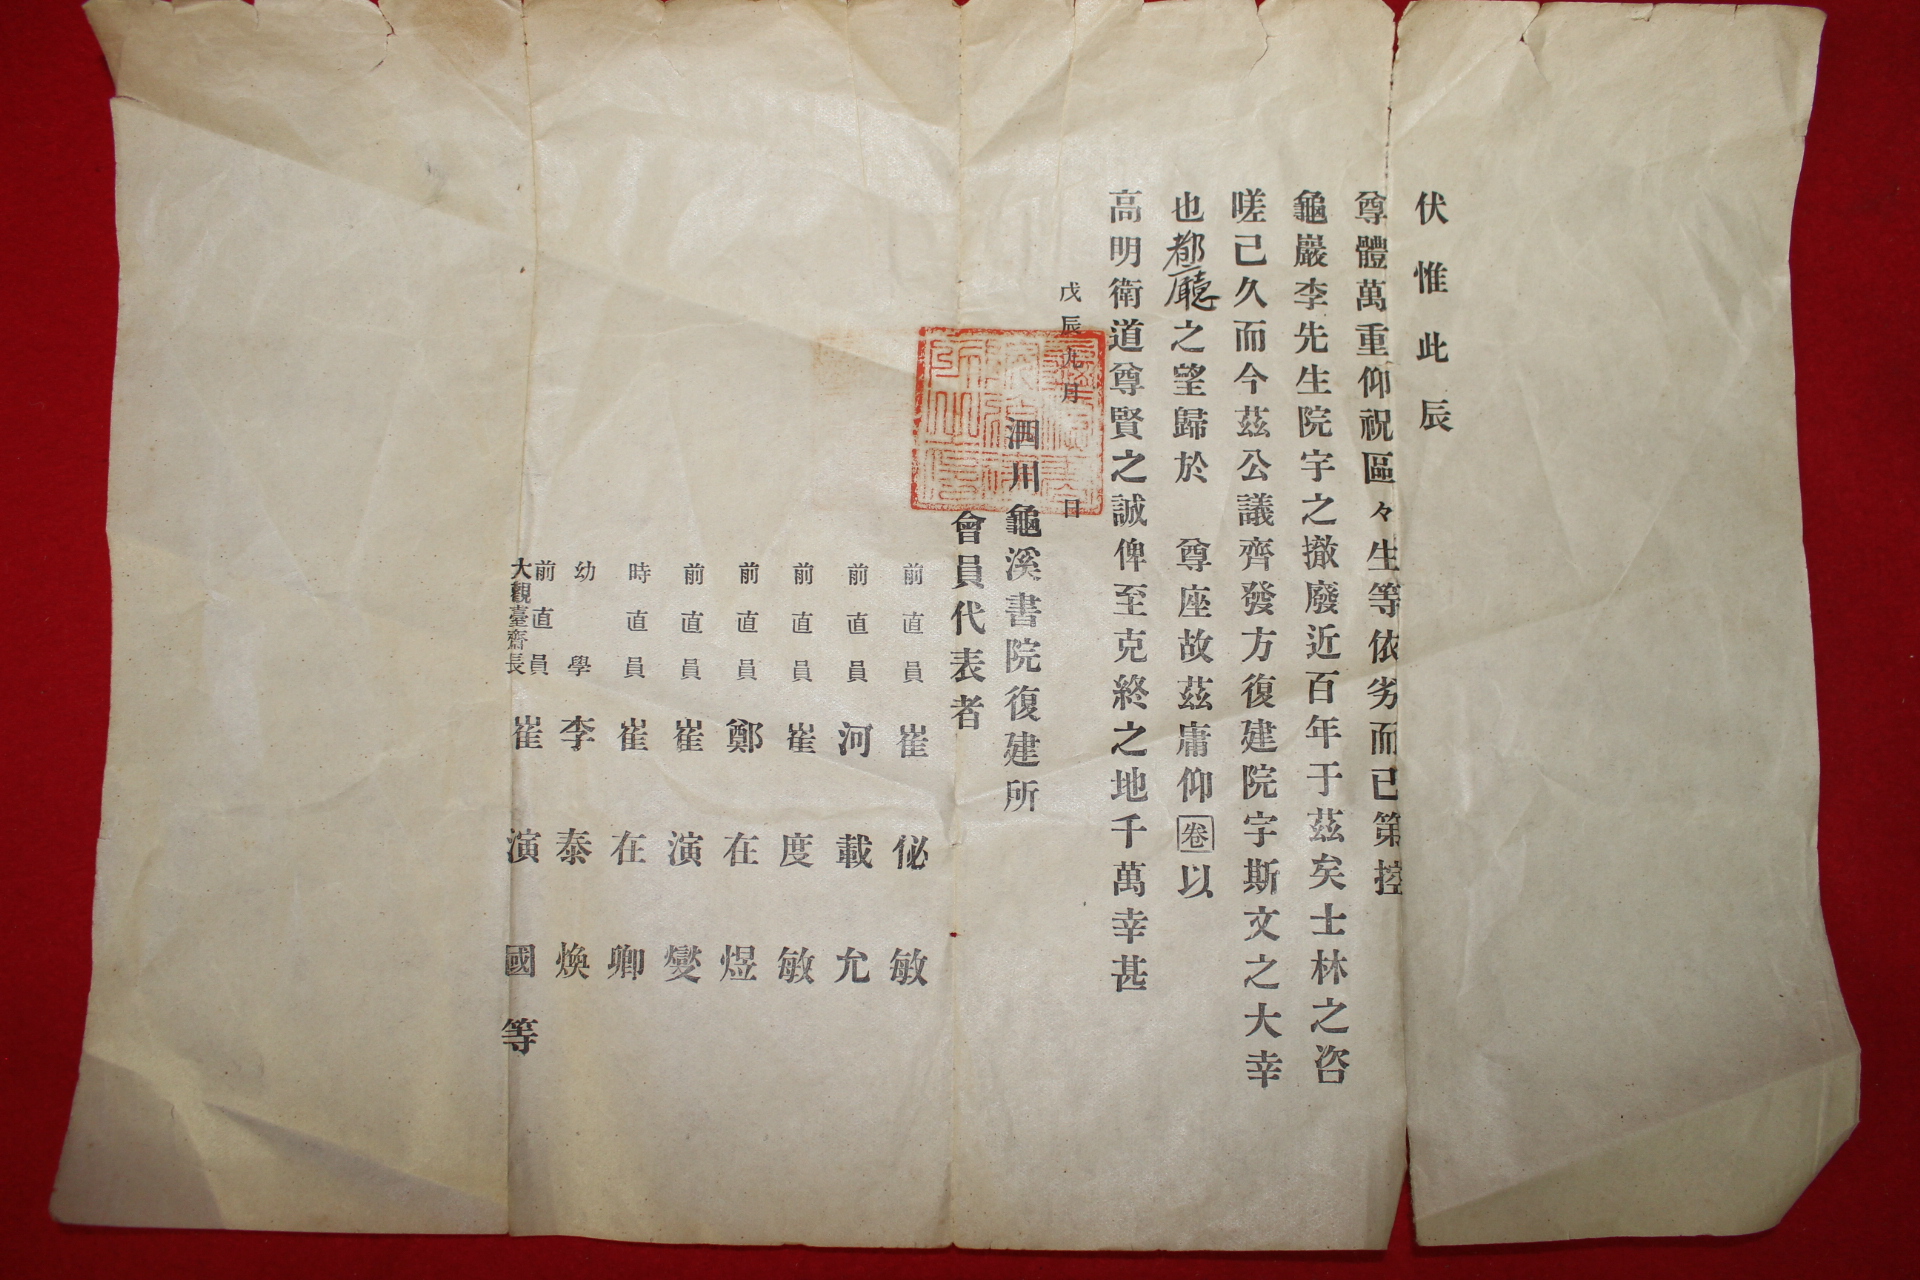 伏惟此辰
尊體萬重仰祝區々生等依劣而已第控
龜巖李先生院宇之撤廢近百年于茲矣士林之咨
嗟已久而今茲公議齊發方復建院宇斯文之大幸
也都廳之望歸於 尊座故茲庸仰卷以
高明衛道尊賢之誠俾至克終之地千萬幸甚
戊辰九月 日
泗川龜溪書院復建所
會員代表者
前直員 崔佖敏
前直員 河載允
前直員 崔度敏
前直員 鄭在煜
前直員 崔演燮
時直員 崔在卿
幼學 李泰煥
前直員
大觀臺齊長 崔演國 等